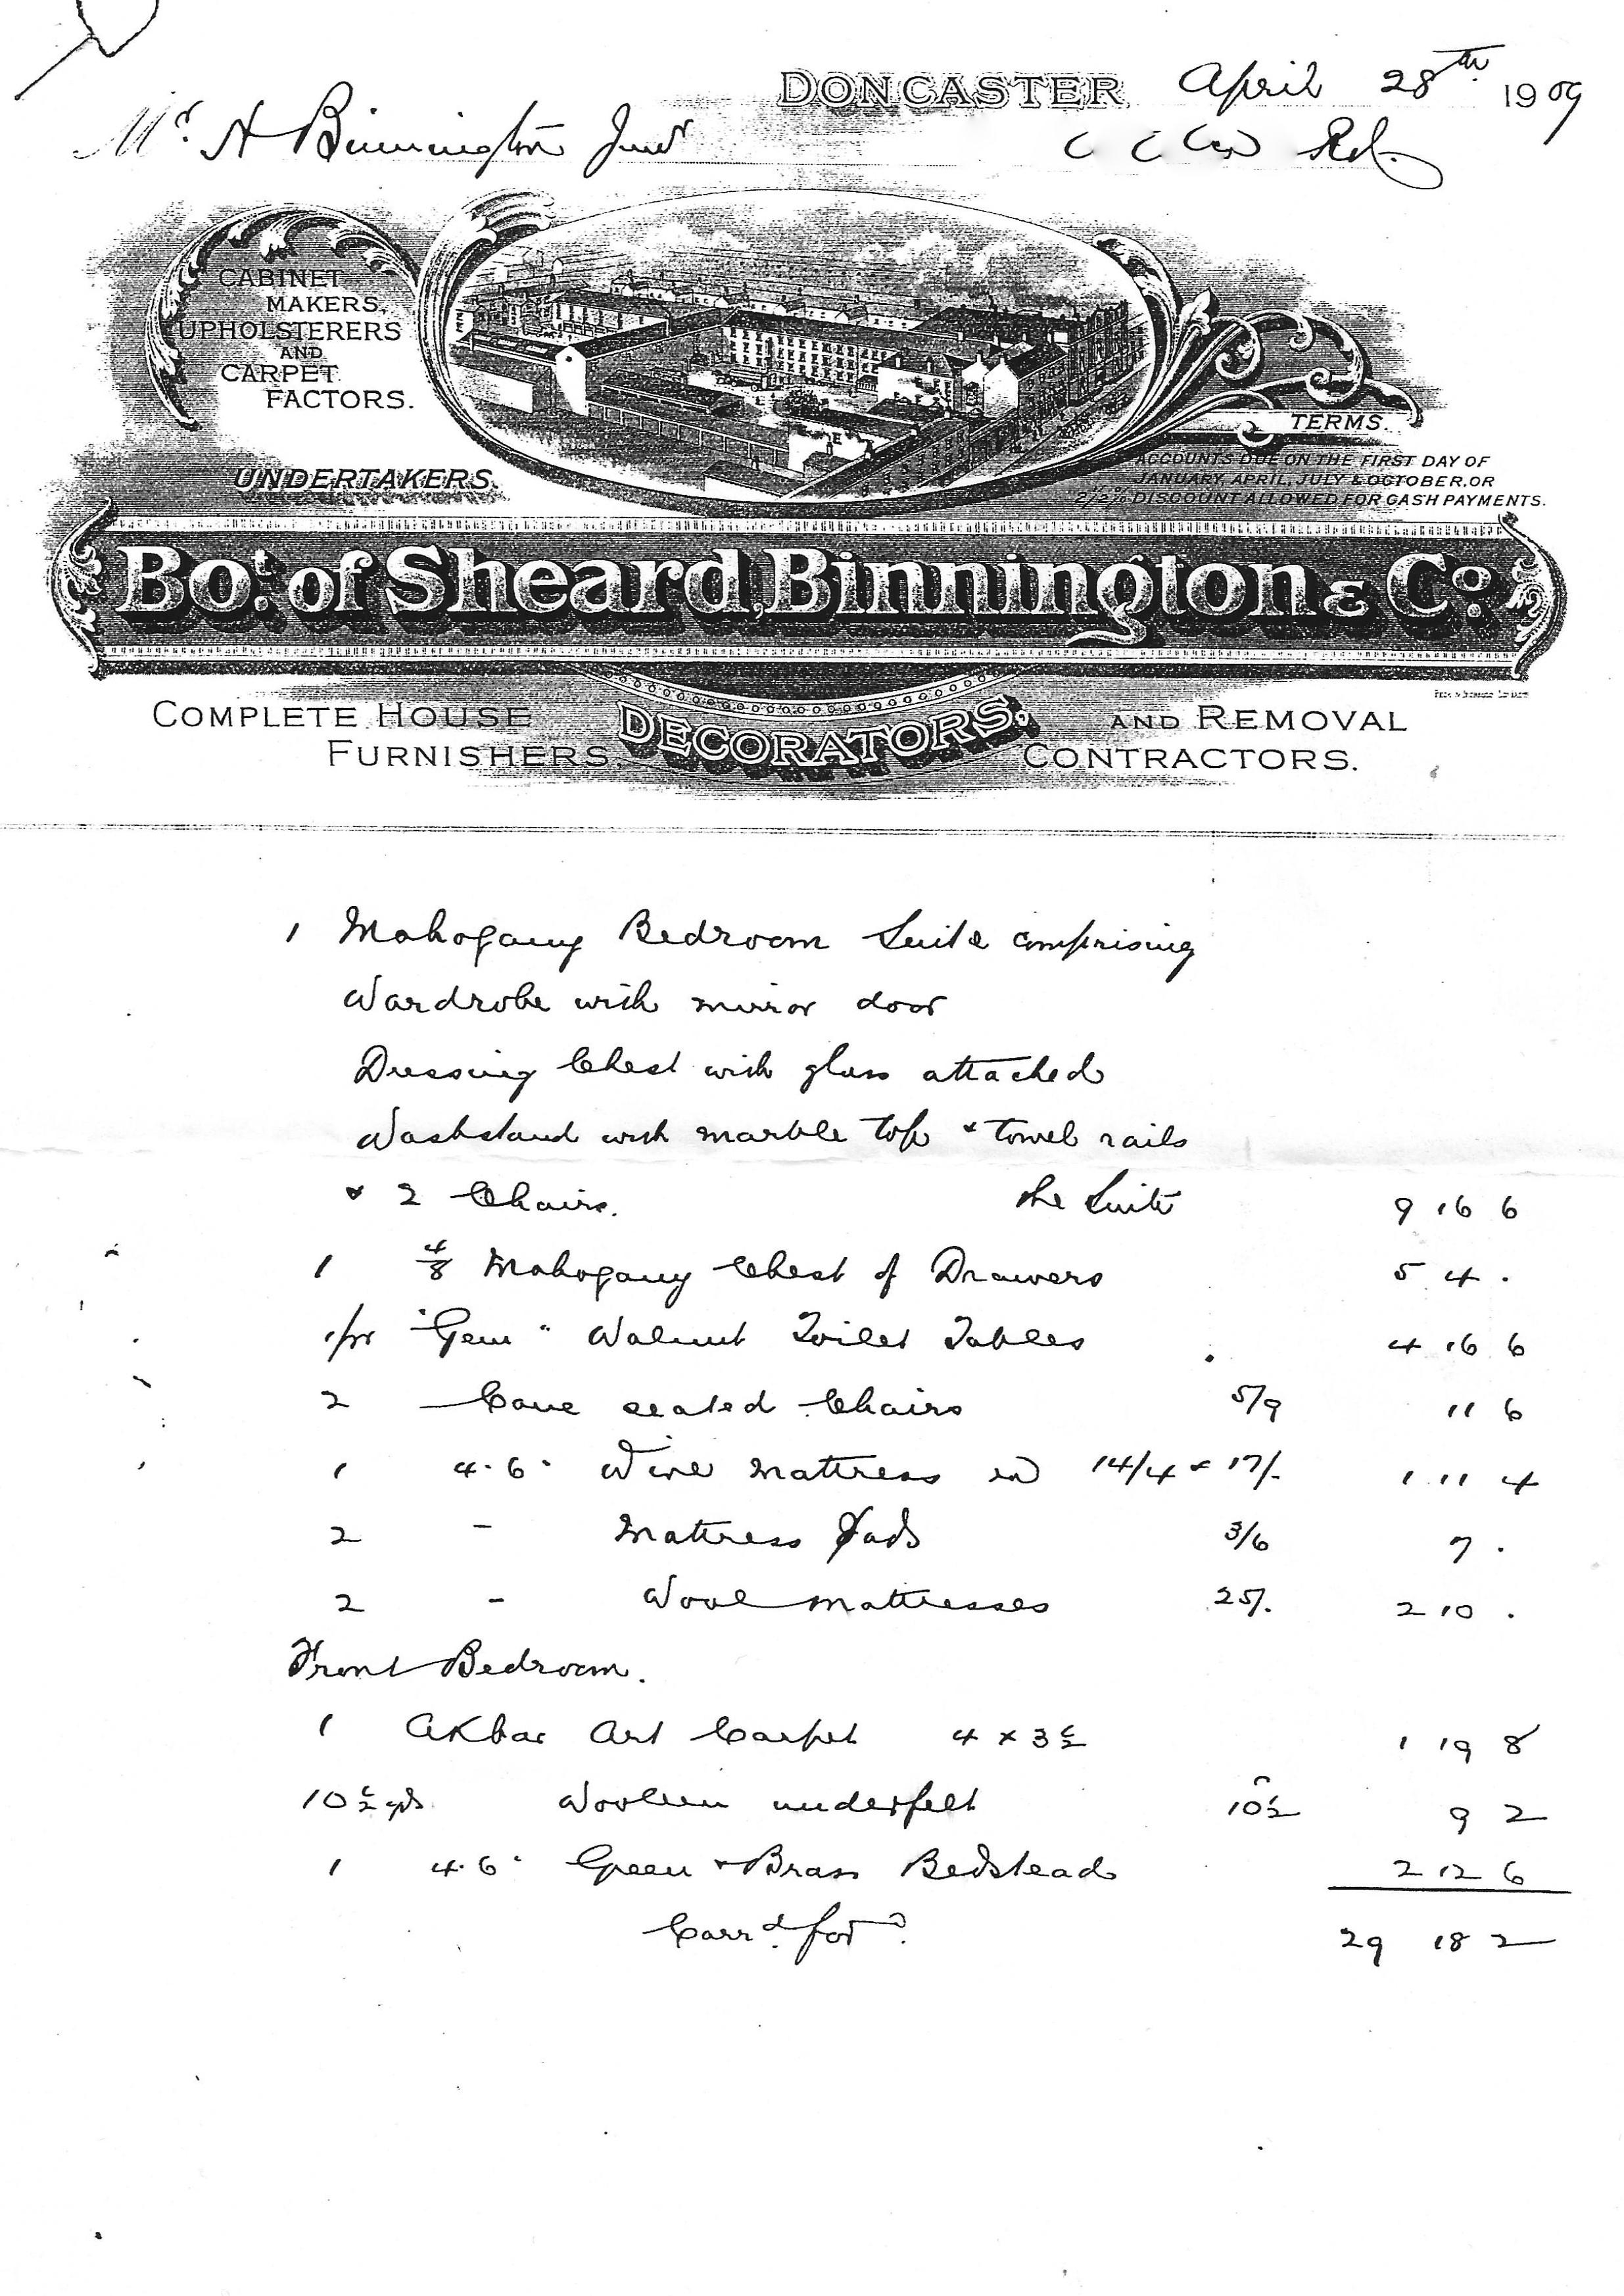 DONCASTER, April 28th 1909
Mr. H Binnington Junr
Rd.
CABINET
MAKERS,
UPHOLSTERERS
AND
CARPET
FACTORS.
UNDERTAKERS.
TERMS.
ACCOUNTS DUE ON THE FIRST DAY OF
JANUARY, APRIL, JULY & OCTOBER, OR
2½% DISCOUNT ALLOWED FOR CASH PAYMENTS.
Bot. of Sheard, Binnington & Co.
COMPLETE HOUSE
FURNISHERS,
DECORATORS,
AND REMOVAL
CONTRACTORS.
1 Mahogany Bedroom Suite comprising
Wardrobe with mirror door
Dressing Chest with glass attached
Washstand with marble top & towel rails
& 2 Chairs. the Suite 9 16 6
1 4/8 Mahogany Chest of Drawers 5 4 .
1/pr "Gem" Walnut Toilet Tables 4 16 6
2 Cane seated Chairs 5/9 11 6
1 4.6" Wire Mattress in 14/4 & 17/- 1 11 4
2 - Mattress Pads 3/6 7 .
2 - Wool mattresses 25/. 2 10 .
Front Bedroom.
1 Akbar Art Carpet 4 x 3½ 1 19 8
10½ yds Woollen underfelt 10½ 9 2
1 4.6" Green & Brass Bedstead 2 12 6
Carrd. ford. 29 18 2